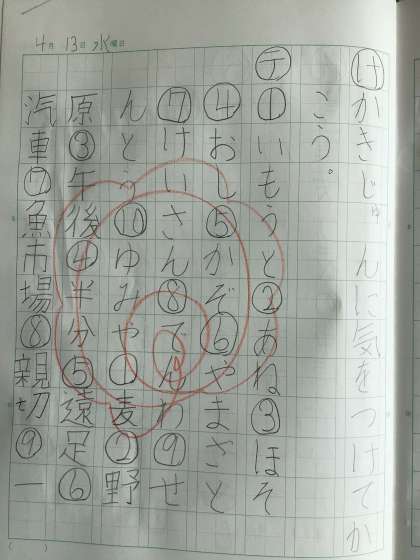 4月13日水曜日
けかきじゅんに気をつけてか
こう。
テ①いもうと②あね③ほそ
④おし⑤かぞ⑥やまざと
⑦けいさん⑧でんわ⑨せ
んとう⑩ゆみや①麦②野
原③午後④半分⑤遠足⑥
汽車⑦魚市場⑧親切⑨一